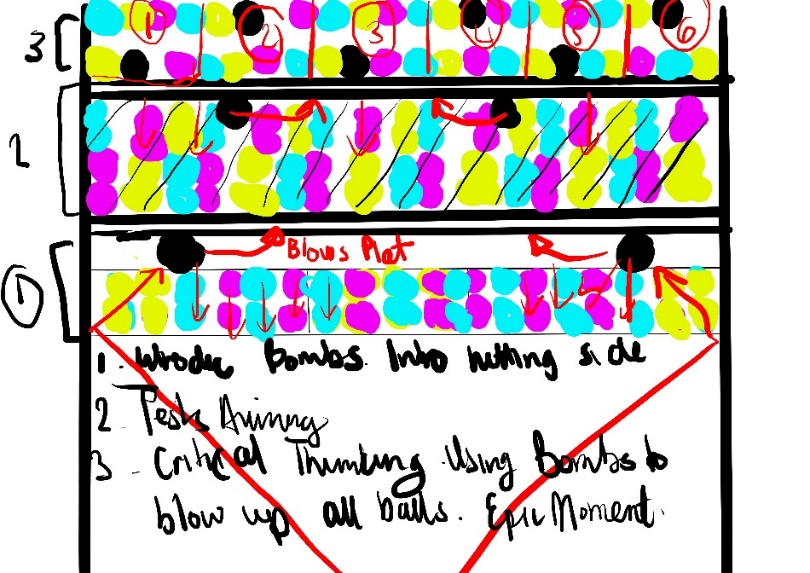 3 1 2 3 4 5 6
2
1 Blows Plat
1. Bombs Into hitting side
2 - Tests Aiming
3 - Critical Thinking. Using Bombs to
blow up all balls. Epic Moment.